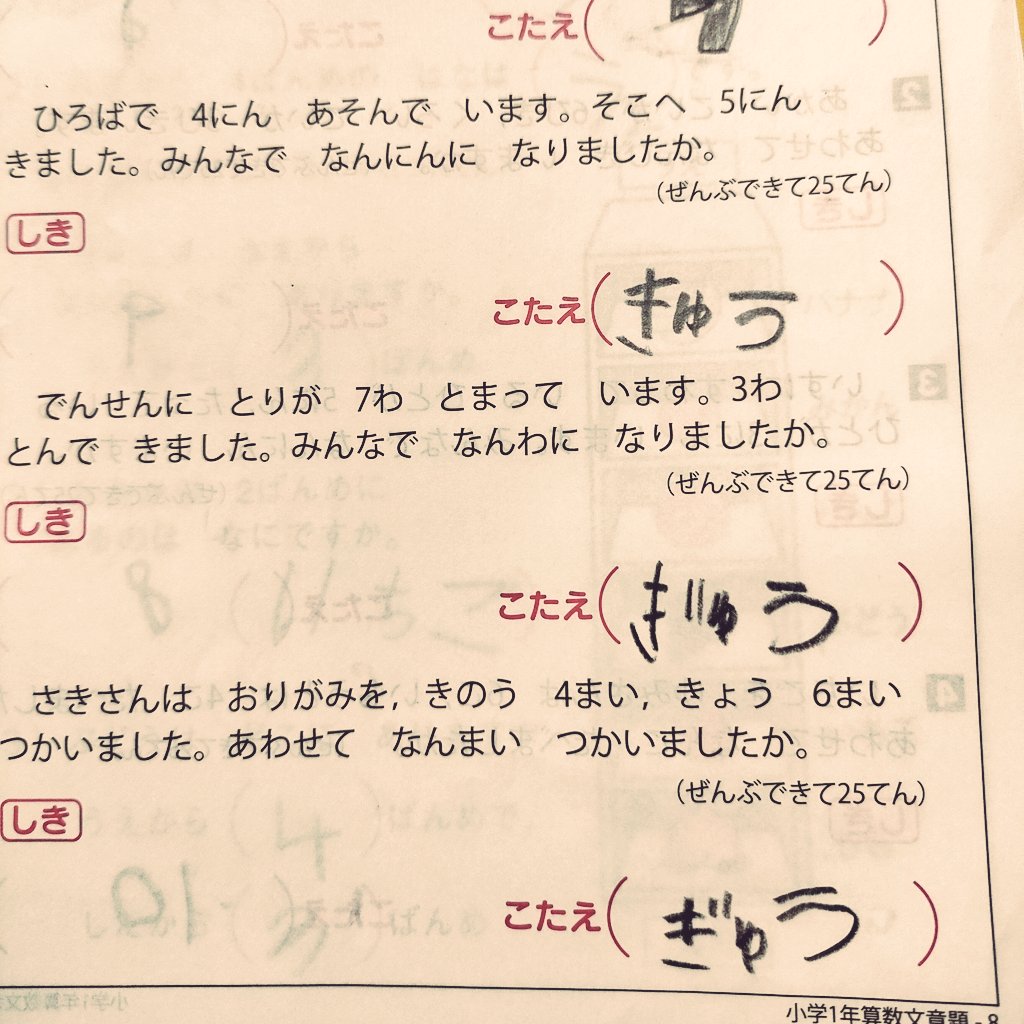 こたえ( 9 )
ひろばで 4にん あそんで います。そこへ 5にん
きました。みんなで なんにんに なりましたか。
(ぜんぶできて25てん)
しき
こたえ(きゅう)
でんせんに とりが 7わ とまって います。3わ
とんで きました。みんなで なんわに なりましたか。
(ぜんぶできて25てん)
しき
こたえ(ぎゅう)
さきさんは おりがみを, きのう 4まい, きょう 6まい
つかいました。あわせて なんまい つかいましたか。
(ぜんぶできて25てん)
しき
こたえ(ぎゅう)
小学1年算数文章題 - 8